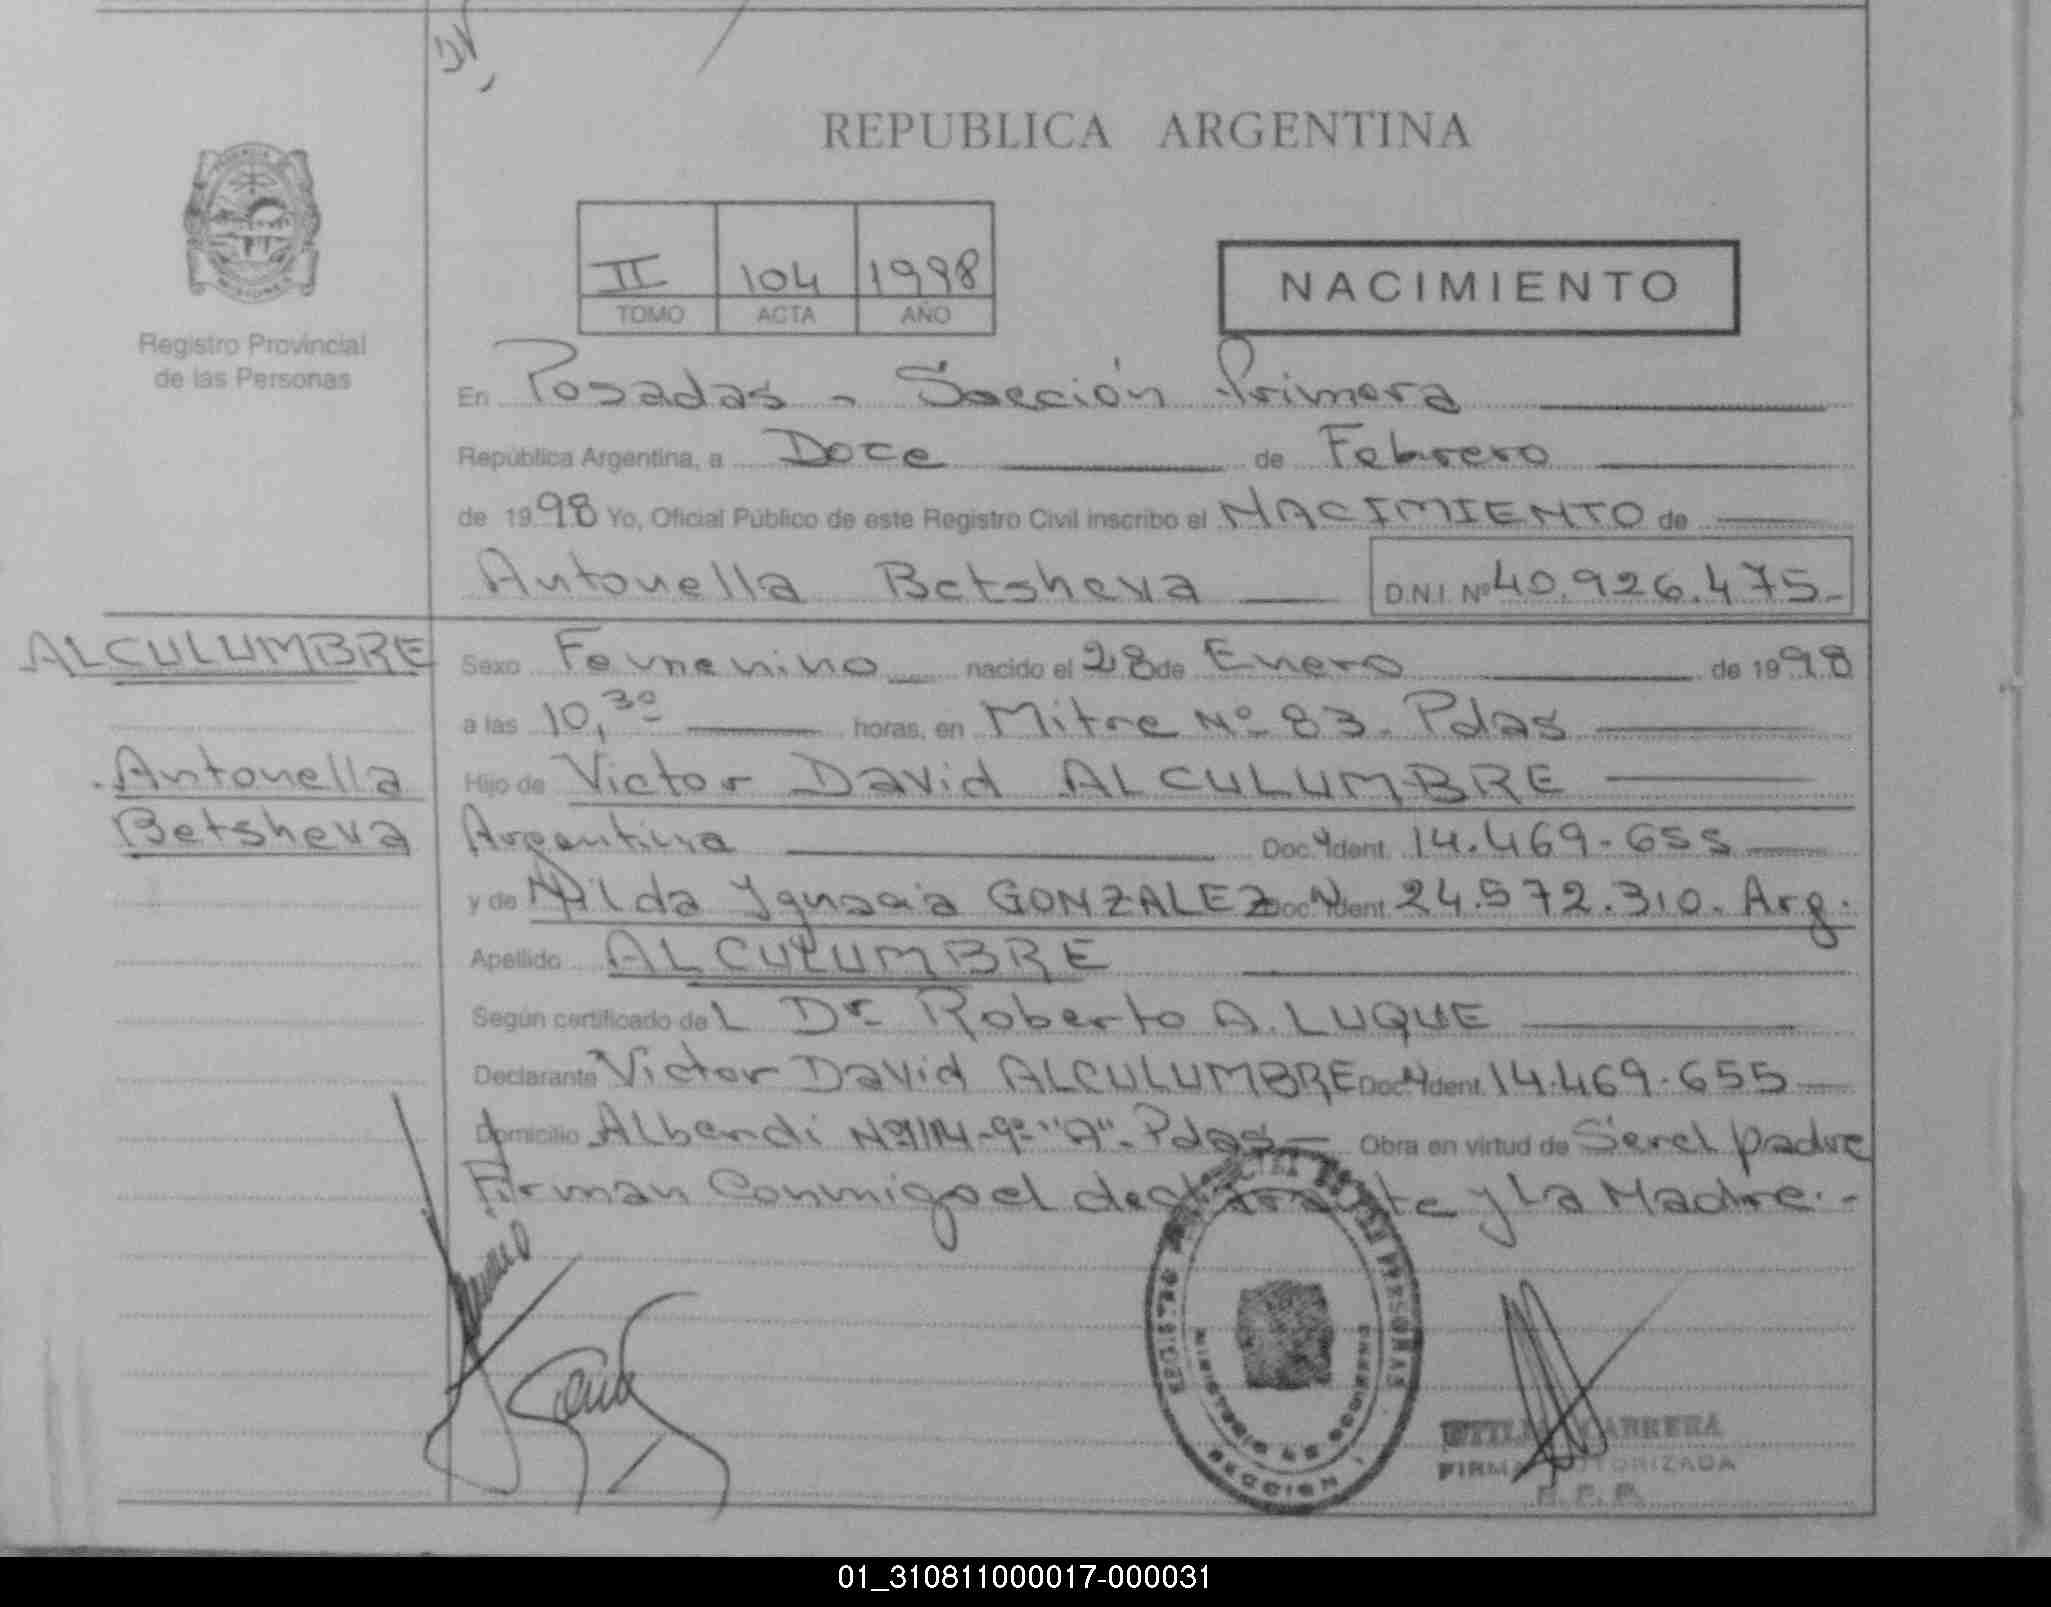 REPUBLICA ARGENTINA
II 104 1998
TOMO ACTA AÑO
NACIMIENTO
Registro Provincial
de las Personas
En Posadas - Sección Primera
República Argentina, a Doce de Febrero
de 1998 Yo, Oficial Público de este Registro Civil inscribo el NACIMIENTO de
Antonella Betsheva D.N.I. Nº 40.926.475.-
ALCULUMBRE
Antonella
Betsheva
Sexo Femenino nacido el 28 de Enero de 1998
a las 10,30 horas, en Mitre Nº 83. Pdas
Hijo de Victor David ALCULUMBRE
Argentina Doc. Ident. 14.469.655
y de Nilda Ygnacia GONZALEZ Doc. Ident. 24.572.310. Arg.
Apellido ALCULUMBRE
Según certificado de L Dr. Roberto A. LUQUE
Declarante Victor David ALCULUMBRE Doc. Ident. 14.469.655
Domicilio Alberdi 9º "A". Pdas - Obra en virtud de Ser el padre
Firman Conmigo el declarante y La Madre.-
REGISTRO DE LAS PERSONAS
MINISTERIO DE GOBIERNO
SECCION 1
CARRERA
FIRMA AUTORIZADA
R. P. P.
01_310811000017-000031